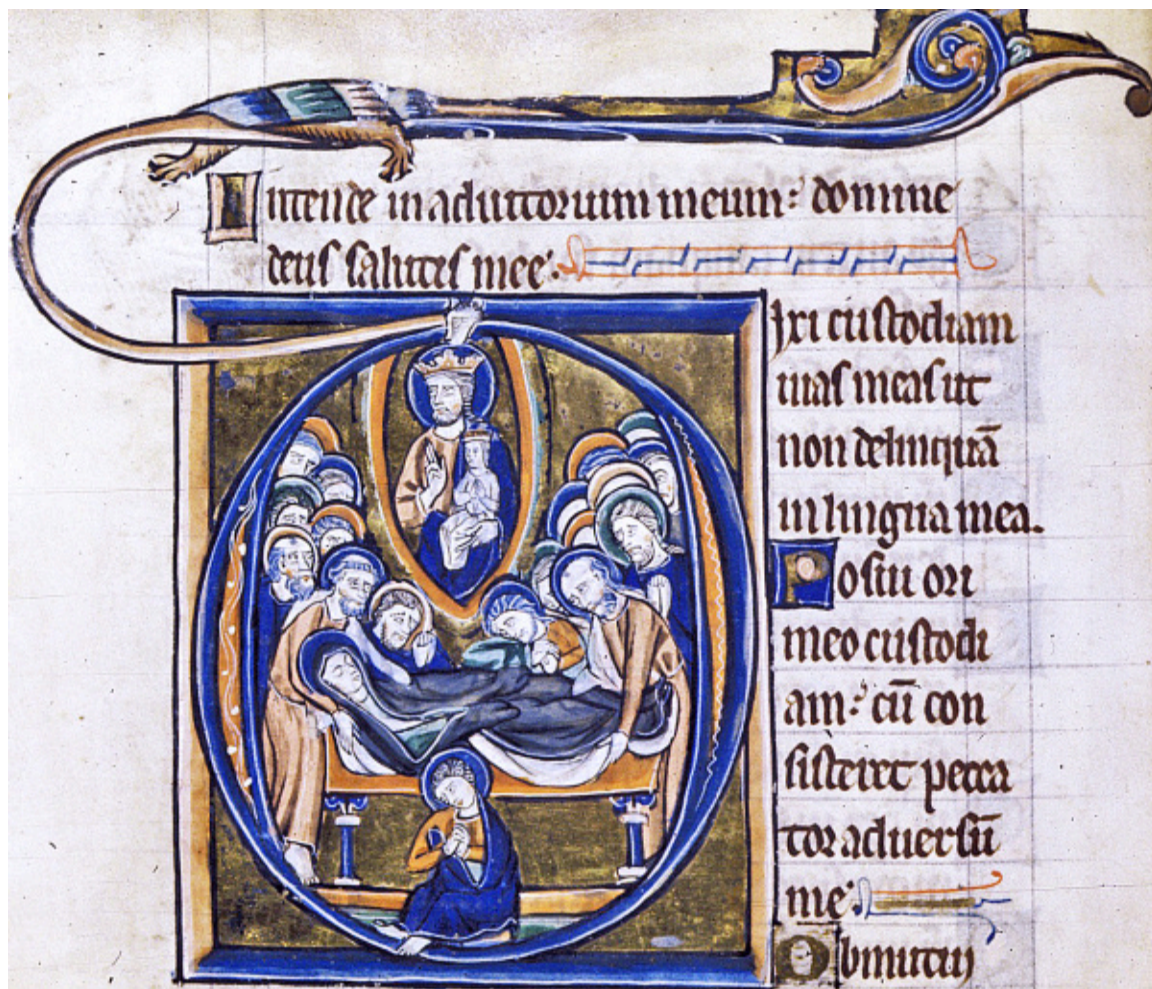 Intende in adiutorium meum: domine
deus salutis mee.
Dixi custodiam
uias meas ut
non delinquā
in lingua mea.
Posui ori
meo custodi
am: cū con
sisteret pecca
tor aduersū
me.
Obmutui